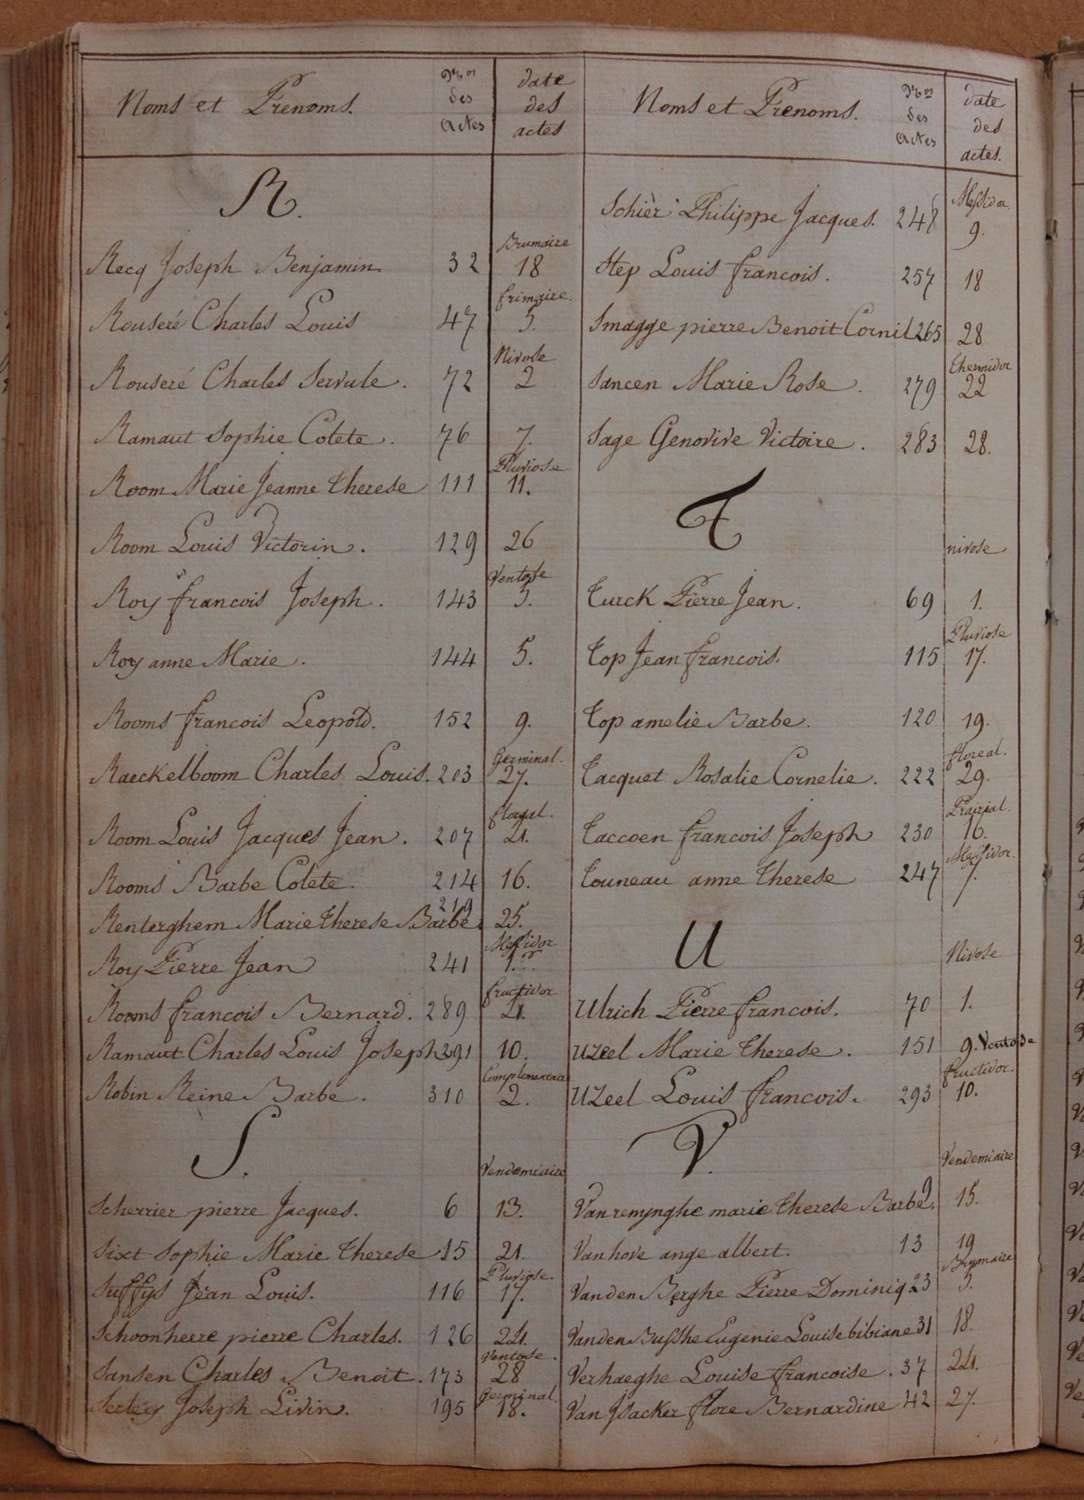 Noms et Prenoms. Nos des actes date des actes
R.
Brumaire
Recq Joseph Benjamin 32 18
frimaire.
Rouseré Charles Louis 47 5.
Nivose
Rouseré Charles Servule. 72 2
Ramaut Sophie Colete. 76 7.
Pluviose
Room Marie Jeanne Therese 111 11.
Room Louis Victorin. 129 26
Ventose
Roy francois Joseph. 143 5.
Roy anne Marie. 144 5.
Rooms francois Leopold. 152 9.
Germinal.
Raeckelboom Charles Louis. 203 27.
floreal.
Room Louis Jacques Jean. 207
Rooms Barbe Colete. 214 16.
Renterghem Marie Therese Barbe. 219 25.
Messidor
Roy Pierre Jean 241 1er
fructidor
Rooms francois Bernard. 289
Ramaut Charles Louis Joseph 291 10.
Complementaire
Robin Reine Barbe. 310 2.
S.
Vendemiaire
Scherrier pierre Jacques. 6 13.
Sixt Sophie Marie Therese 15 21.
Pluviose.
Suffys Jean Louis. 116 17.
Schoonheere pierre Charles. 126 24.
Ventose.
Sansen Charles Benoit. 173 28
Germinal
Joseph Livin. 195 18.
Noms et Prenoms. Nos des actes date des actes.
Messidor
Schier Philippe Jacques. 248 9.
Step Louis francois. 257 18
Smagge pierre Benoit Cornil 265 28
Thermidor
Sancen Marie Rose. 279 22
Sage Genovive Victoire. 283 28.
T
nivose
Turck Pierre Jean. 69 1.
Pluviose
Top Jean francois. 115 17.
Top amelie Barbe. 120 19.
floreal.
Tacquet Rosalie Cornelie. 222 29.
Prairial.
Taccoen francois Joseph 230 16.
Messidor.
Touneau anne Therese 247 7.
U
Nivose
Ulrich Pierre francois. 70 1.
Uzeel Marie Therese. 151 9. Ventose
fructidor.
Uzeel Louis francois. 293 10.
V.
Vendemiaire
Van remynghe marie Therese Barbe. 9 15.
Van hove ange albert. 13 19
Brumaire
Vanden Berghe Pierre Dominiq 23 5.
Vanden Bussche Eugenie Louise bibiane 31 18.
Verhaeghe Louise francoise. 37 24.
Van Isacker flore Bernardine 42 27.